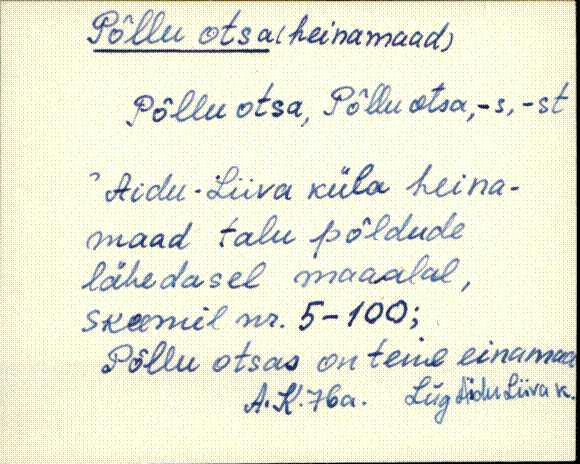 Põllu otsa (heinamaad)
Põllu otsa, Põllu otsa, -s, -st
Aidu-Liiva küla heina-
maad talu põldude
lähedasel maaalal,
skeemil nr. 5-100;
Põllu otsas on teine einamaa
A.K. 76a. Lüg Aidu Liiva k.